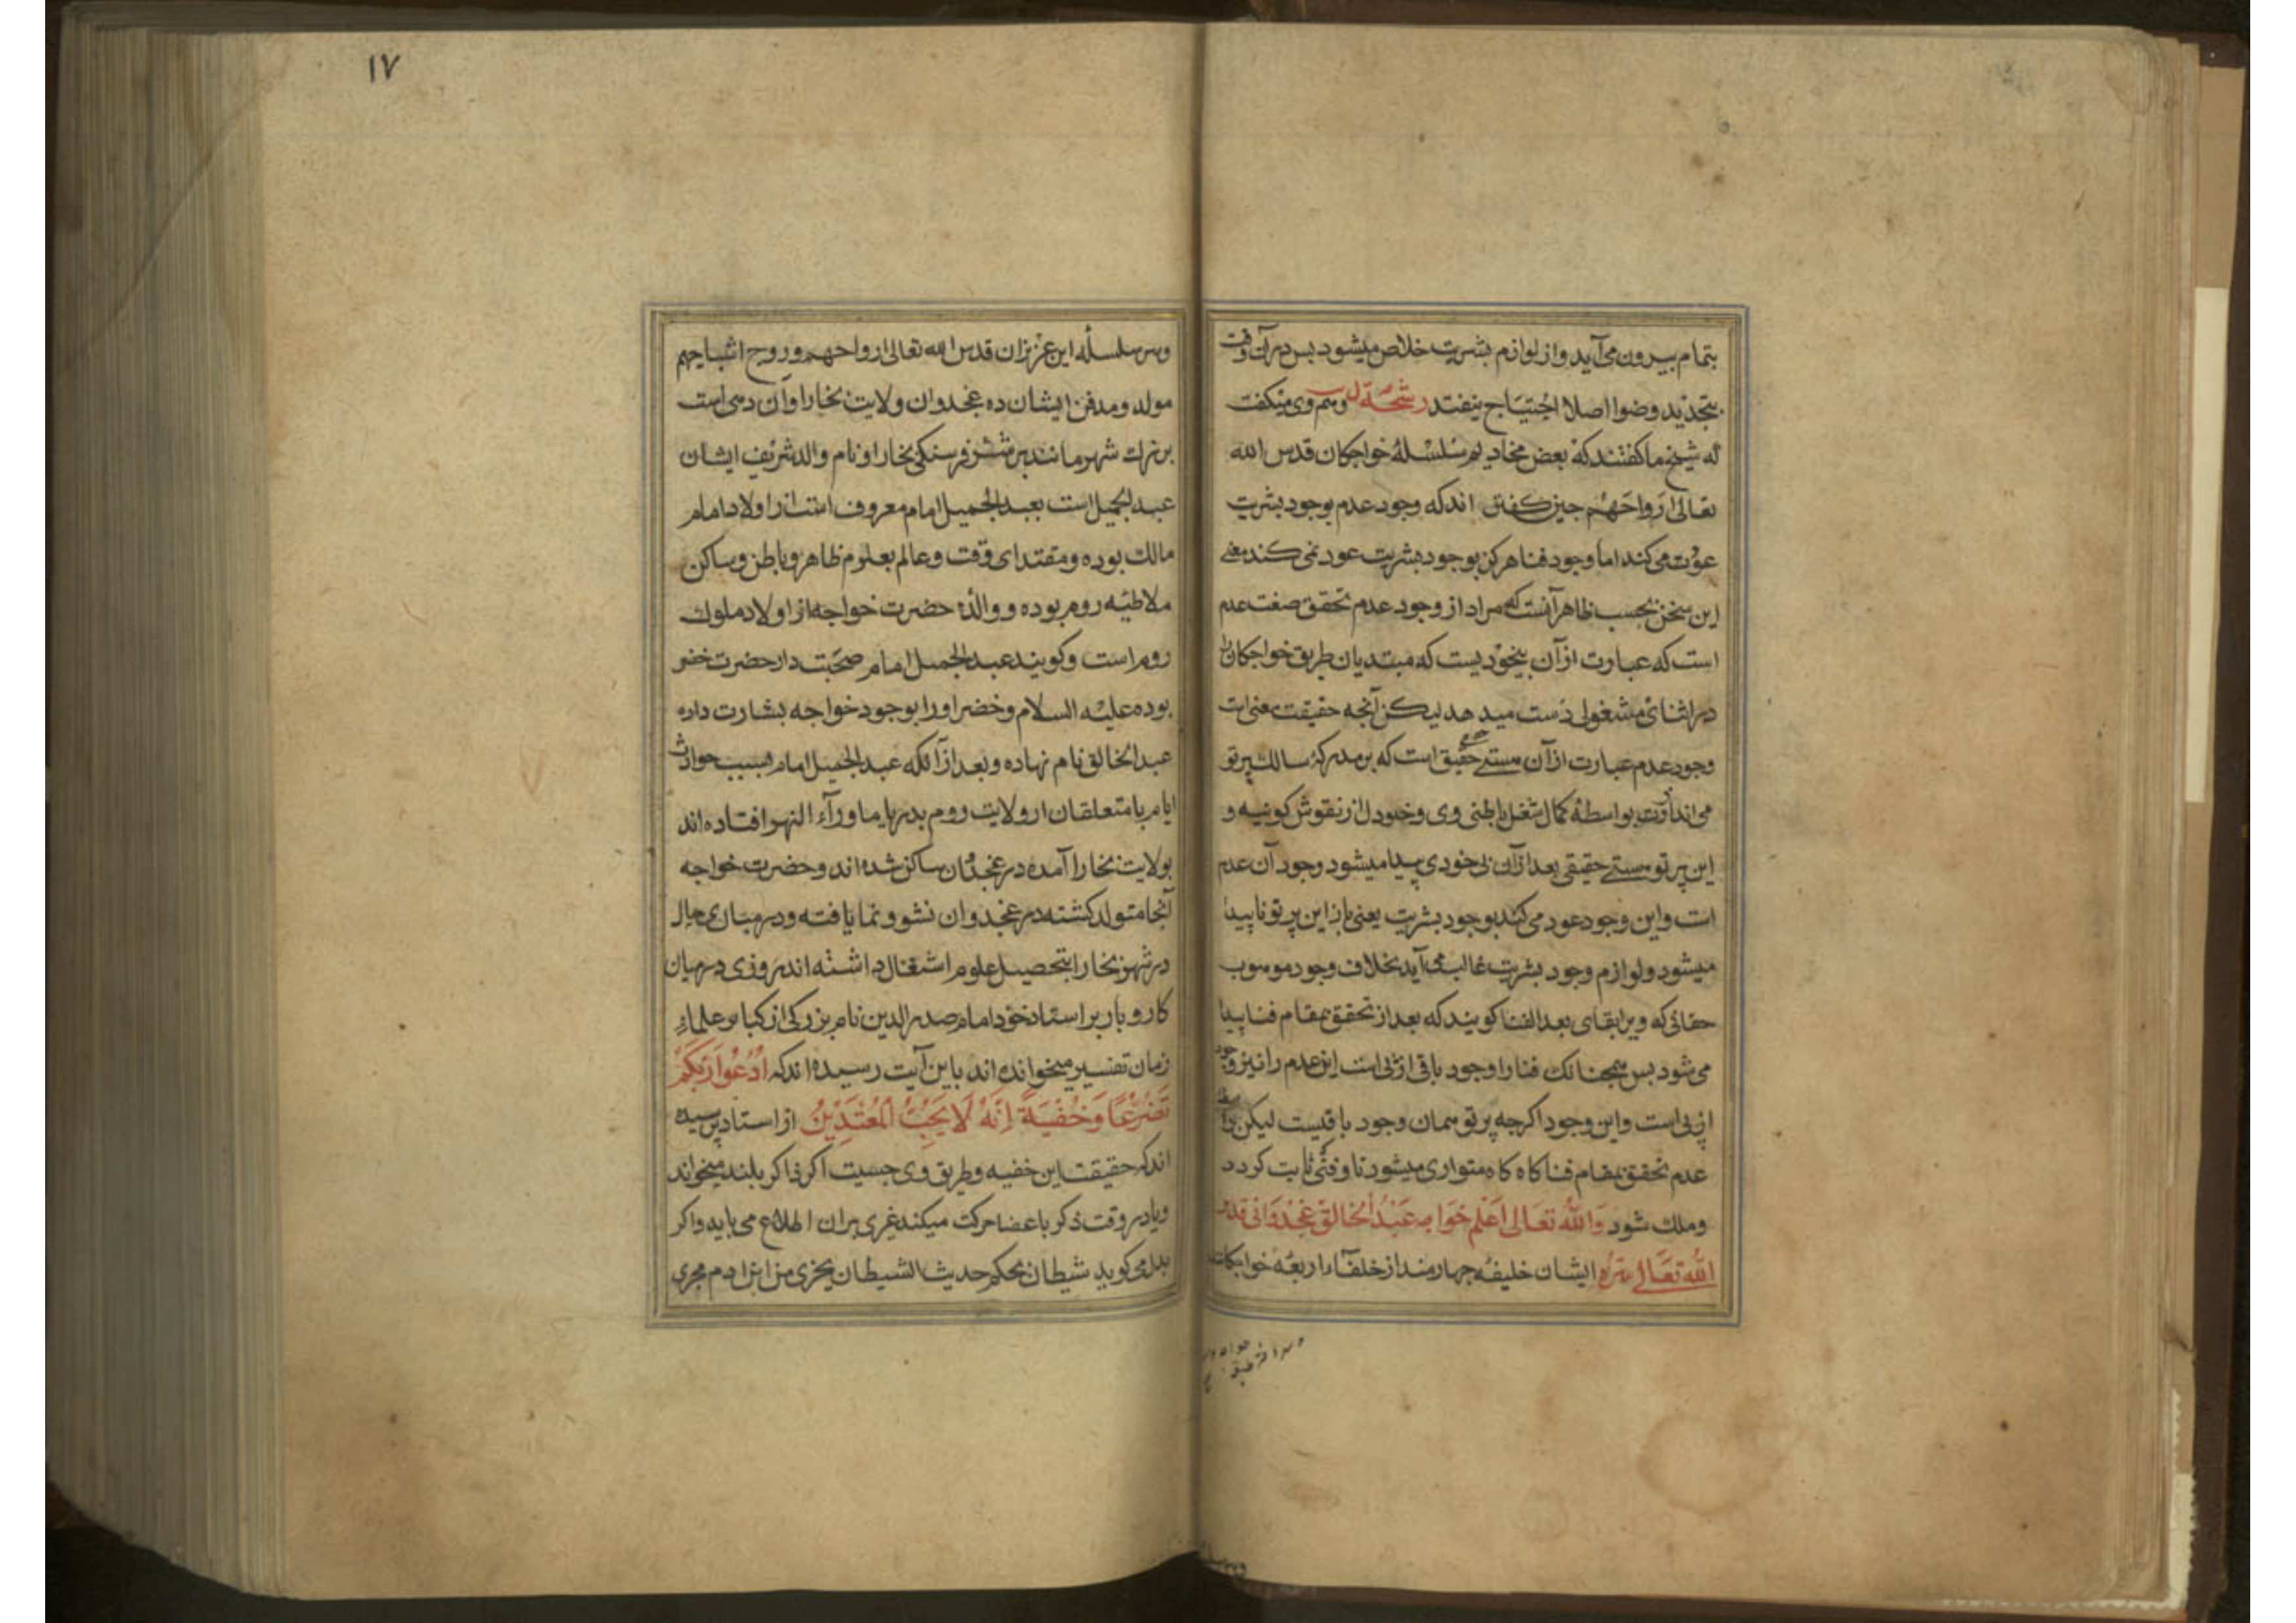 بتمام بیرون می آید و از لوازم بشریت خلاص میشود بس در آن وقت
بتجدید وضوا اصلا احتیاج نیفتد رشحة وهم وی میکفت
که شیخ ما کفتند که بعض مخادیم سلسلۀ خواجکان قدس الله
تعالی ارواحهم جنین کفته اند که وجود عدم بوجود بشریت
عود می کند اما وجود فنا هرکز بوجود بشریت عود نمی کند معنی
این سخن بحسب ظاهر آنست که مراد از وجود عدم تحقق صفت عدم
است که عبارت از آن بیخودیست که مبتدیان طریق خواجکان را
در اثنای مشغولی دست میدهد لیکن آنجه حقیقت معنی است
وجود عدم عبارت از آن هستی حقیقی است که بر مدرکۀ سالک پرتو
می اندازد بواسطۀ کمال شغل باطنی وی و خلود از نقوش کونیه و
این پرتو هستی حقیقی بعد از آن بی خودی پیدا میشود وجود آن عدم
است و این وجود عود می کند بوجود بشریت یعنی باز این پرتو ناپیدا
میشود و لوازم وجود بشریت غالب می آید بخلاف وجود موهوب
حقانی که ویرا بقای بعد الفنا کویند که بعد از تحقق بمقام فنا پیدا
می شود بس همجنانک فنا را وجود باقی از پی است این عدم را نیز وجود
از پی است و این وجود اکرجه پرتو همان وجود باقیست لیکن
عدم تحقق بمقام فنا کاه کاه متواری میشود تا وقتی ثابت کردد
وملک شود والله تعالی اعلم خواجه عبد الخالق غجدوانی قدس
الله تعالی سره ایشان خلیفۀ جهارمند از خلفاء اربعۀ خواجکان
۱۷
وسر سلسله این عزیزان قدس الله تعالی ارواحهم و روح اشباحهم
مولد و مدفن ایشان ده غجدوان ولایت بخارا و آن دهی است
بزرک شهر مانند بر شش فرسنکی بخارا و نام والد شریف ایشان
عبد الجمیل است بعبد الجمیل امام معروف است از اولاد امام
مالک بوده و مقتدای وقت و عالم بعلوم ظاهر و باطن و ساکن
ملاطیه روم بوده و والدۀ حضرت خواجه از اولاد ملوک
روم است و کویند عبد الجمیل امام صحبت دار حضرت خضر
بوده علیه السلام و خضر او را بوجود خواجه بشارت داده
عبد الخالق نام نهاده و بعد از آنکه عبد الجمیل امام بسبب حوادث
ایام با متعلقان از ولایت روم بدیار ماوراء النهر افتاده اند
بولایت بخارا آمده در غجدوان ساکن شده اند و حضرت خواجه
آنجا متولد کشته در غجدوان نشو و نما یافته و در مبادی حال
در شهر بخارا بتحصیل علوم اشتغال داشته اند روزی در میان
کار و بار بر استاد خود امام صدر الدین نام بزرکی از کبار علماء
زمان تفسیر میخوانده اند باین آیت رسیده اند که ادعوا ربکم
تضرعا وخفیة انه لا یحب المعتدین از استاد پرسیده
اند که حقیقت این خفیه و طریق وی جیست اکر ذاکر بلند میخواند
و یا در وقت ذکر باعضا حرکت میکند غیری بران اطلاع می یابد و اکر
بدل می کوید شیطان بحکم حدیث الشیطان یجری من ابن ادم مجری